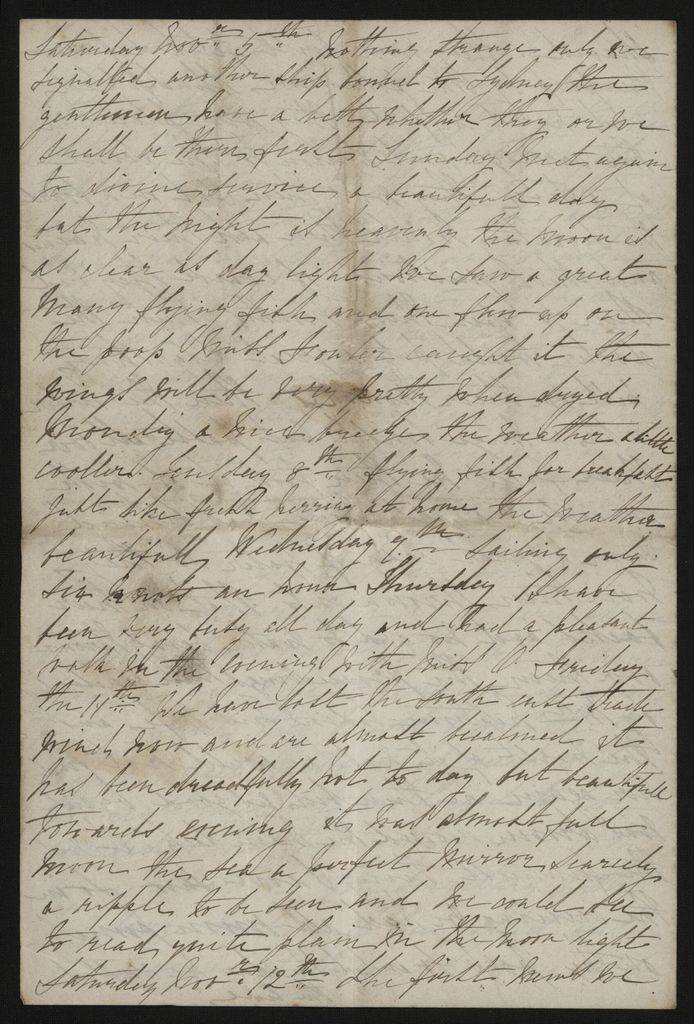 Saturday Nov.r 5th Nothing strange only we
signalled another ship bound to Sydney the
gentlemen have a bett whether they or we
shall be there first Sunday Met again
to divine service a beautifull day
but the Night is heavenly the Moon is
as clear as day light We saw a great
Many flying fish and one flew up on
the poop Miss Fowler caught it the
wings will be very pretty when dryed
Monday a Nice breeze the weather a little
cooller. Tuesday 8th flying fish for breakfast
just like fresh herring at home the Weather
beautifull Wednesday 9th sailing only
six knots an hour Thursday I have
been very busy all day and had a pleasant
walk in the evening with Miss O Friday
the 11th We have lost the south east trade
winds now and are almost becalmed it
has been dreadfully hot to day but beautifull
towards evening it was almost full
moon the sea a perfect Mirror scarcely
a ripple to be seen and we could see
to read quite plain in the Moon light
Saturday Nov.r 12th the first News we